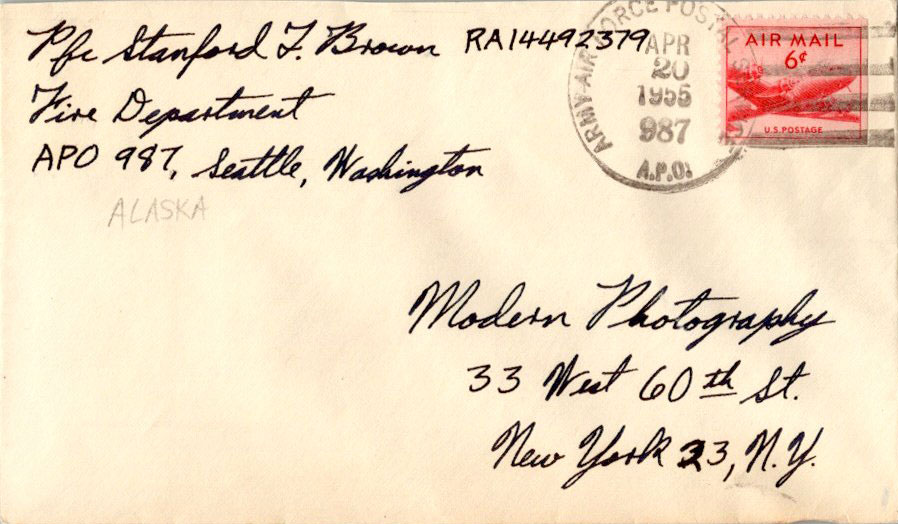 Pfc Stanford F. Brown RA14492379
Fire Department
APO 987, Seattle, Washington
ALASKA
ARMY-AIR FORCE POSTAL
APR
20
1955
987
A.P.O.
AIR MAIL
6¢
U.S. POSTAGE
Modern Photography
33 West 60th St.
New York 23, N.Y.